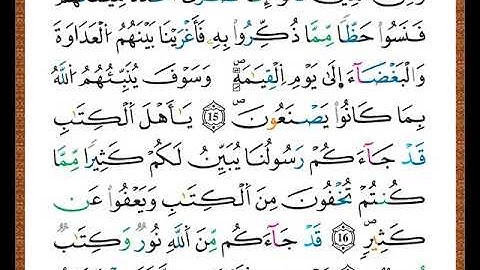 فَنَسُوا۟ حَظّٗا مِّمَّا ذُكِّرُوا۟ بِهِۦ فَأَغْرَيْنَا بَيْنَهُمُ الْعَدَاوَةَ
وَالْبَغْضَآءَ اِلَىٰ يَوْمِ الْقِيَٰمَةِۖ وَسَوْفَ يُنَبِّئُهُمُ اللَّهُ
بِمَا كَانُوا۟ يَصْنَعُونَۖ 15 يَٰٓأَهْلَ اَلْكِتَٰبِ
قَدْ جَآءَكُمْ رَسُولُنَا يُبَيِّنُ لَكُمْ كَثِيرٗا مِّمَّا
كُنتُمْ تُخْفُونَ مِنَ اَلْكِتَٰبِ وَيَعْفُوا۟ عَن
كَثِيرٖۖ 16 قَدْ جَآءَكُم مِّنَ اَللَّهِ نُورٞ وَكِتَٰبٞ